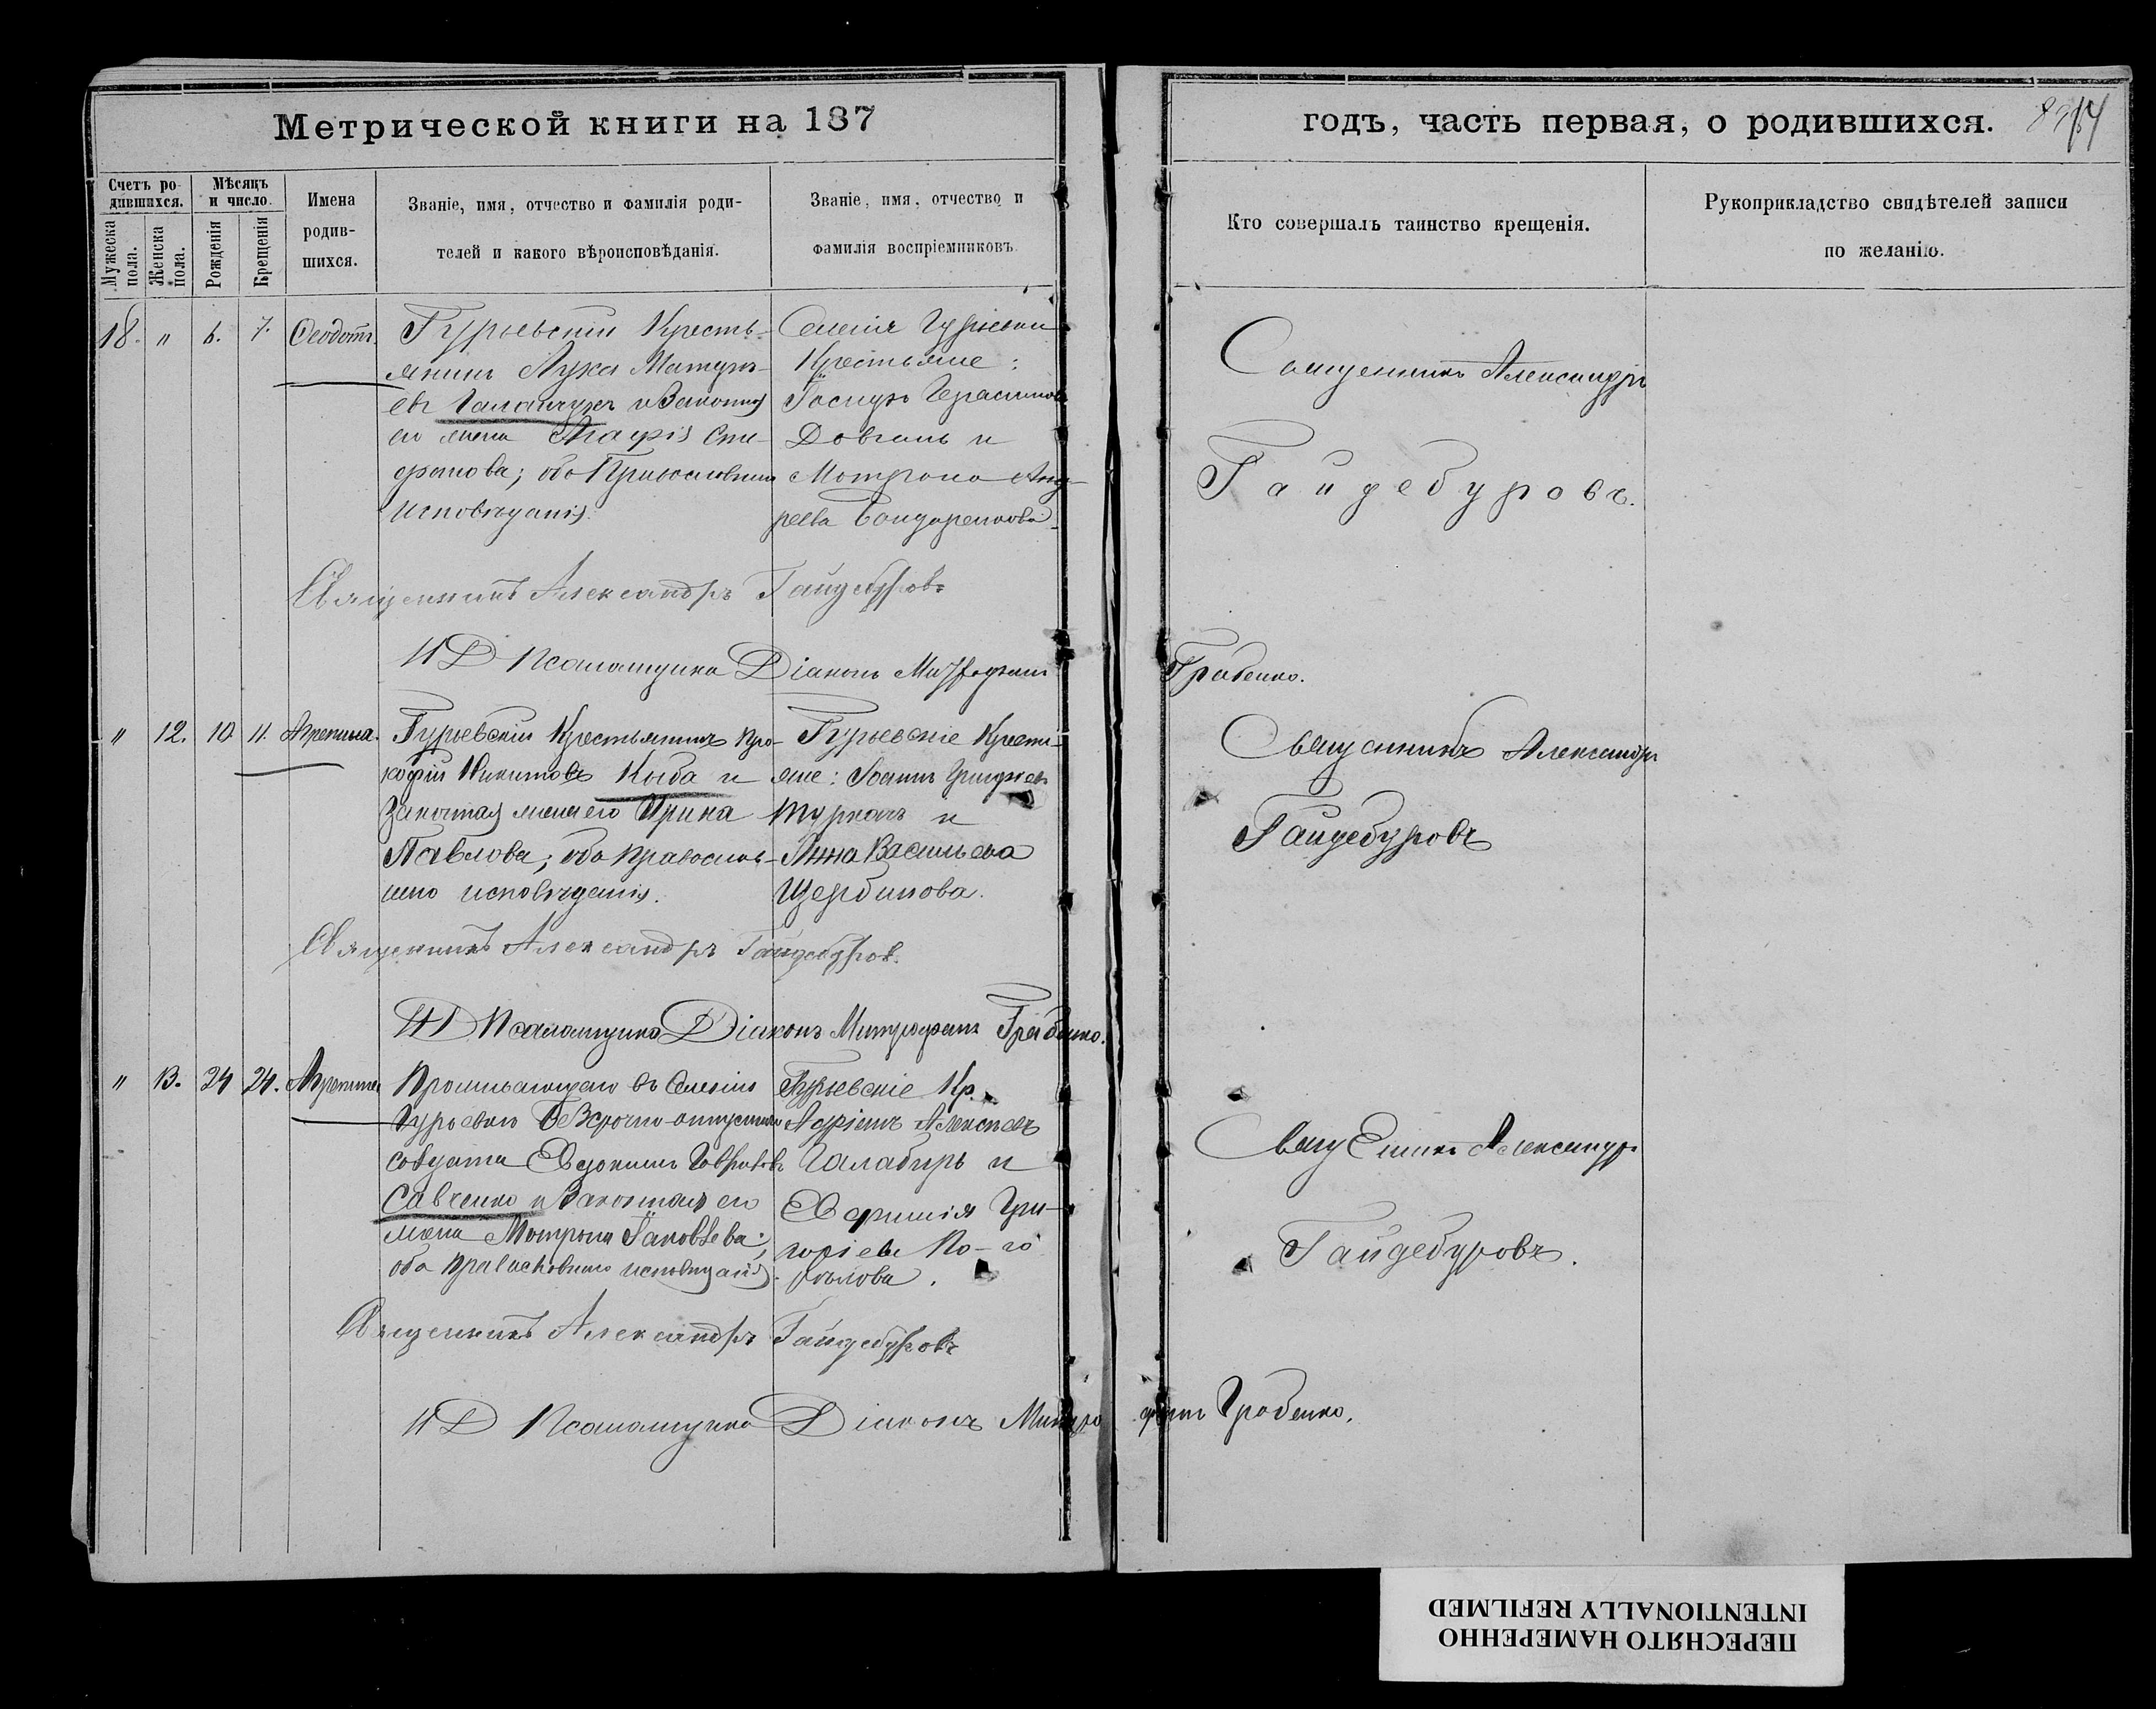 Метрической книги на 187
годъ, часть первая, о родившихся.
Счетъ ро-
дившихся.
Мужеска пола.
Женска пола.
Мѣсяцъ
и число.
Рожденія
Крещенія
Имена
родив-
шихся.
Званіе, имя, отчество и фамилія роди-
телей и какого вѣроисповѣданія.
Званіе, имя, отчество и
фамилія воспріемниковъ.
Кто совершалъ таинство крещенія.
Рукоприкладство свидѣтелей записи
по желанію.
18. " 6. 7. Феодотъ
Гурьевскій Кресть-
янинъ Лука
и Законная
его жена Агафія Сте-
фанова; оба Православнаго
исповѣданія.
Селенія Гурьевки
Крестьяне:
Іосифъ Герасимовъ
Довгань и
Мотрона Анд-
реева Бондаренкова
Священникъ Александръ
Гайдебуровъ.
Священникъ Александръ Гайдебуровъ
ИД Псаломщика Діаконъ Митрофанъ
Грабенко.
" 12. 10. 11. Агрепина.
Гурьевскій Крестьянинъ Про-
кофій Никитовъ Кыба и
Законная жена его Ирина
Павлова; оба Православ-
наго исповѣданія.
Гурьевскіе Крестья-
яне: Іоаннъ Григорьевъ
Туркачъ и
Анна Васильева
Щербинова.
Священникъ Александръ
Гайдебуровъ
Священникъ Александръ Гайдебуровъ.
ИД Псаломщика Діаконъ Митрофанъ Грабенко.
" 13. 24 24. Агрепина
Проживающаго въ Селеніи
Гурьевкѣ безсрочно-отпускнаго
солдата Евдокимъ Гавриловъ
Савченко и Законная его
жена Мотрона Іаковлева;
оба Православнаго исповѣданія.
Гурьевскіе Кр.
Алексѣевъ
Галабирь и
Евфимія Гри-
горіева
Священникъ Александръ
Гайдебуровъ.
Священникъ Александръ Гайдебуровъ
ИД Псаломщика Діаконъ Митро
фанъ Грабенко.
ПЕРЕСНЯТО НАМЕРЕННО
INTENTIONALLY REFILMED